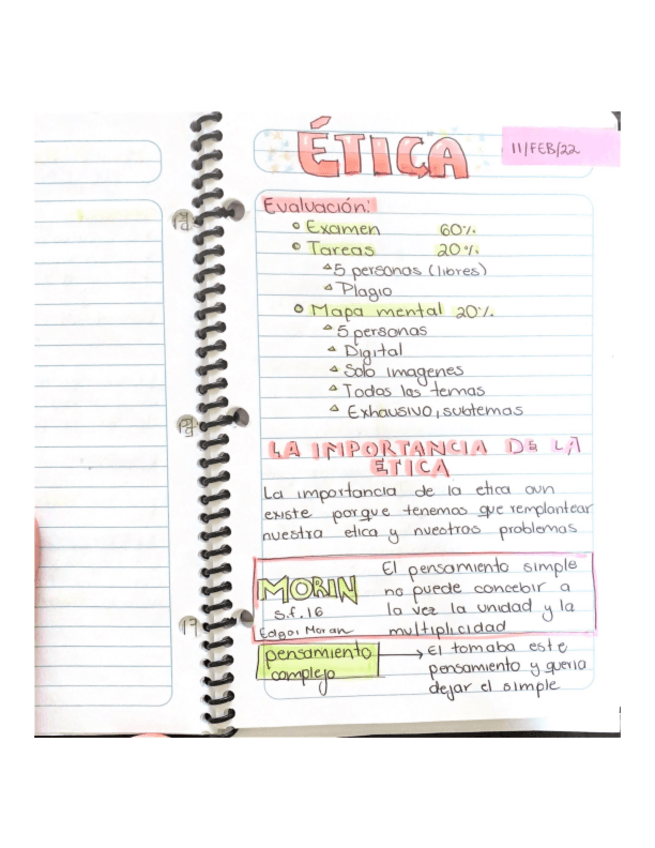 ÉTICA
11/FEB/22
Evaluación:
Examen 60%
Tareas 20%
5 personas (libres)
Plagio
Mapa mental 20%
5 personas
Digital
Solo imagenes
Todos los temas
Exhausivo, subtemas
LA IMPORTANCIA DE LA
ETICA
La importancia de la etica aun
existe porque tenemos que remplantear
nuestra etica y nuestros problemas
El pensamiento simple
MORIN no puede concebir a
s.f. 16 la vez la unidad y la
Edgar Moran multiplicidad
pensamiento → El tomaba este
complejo pensamiento y queria
dejar el simple